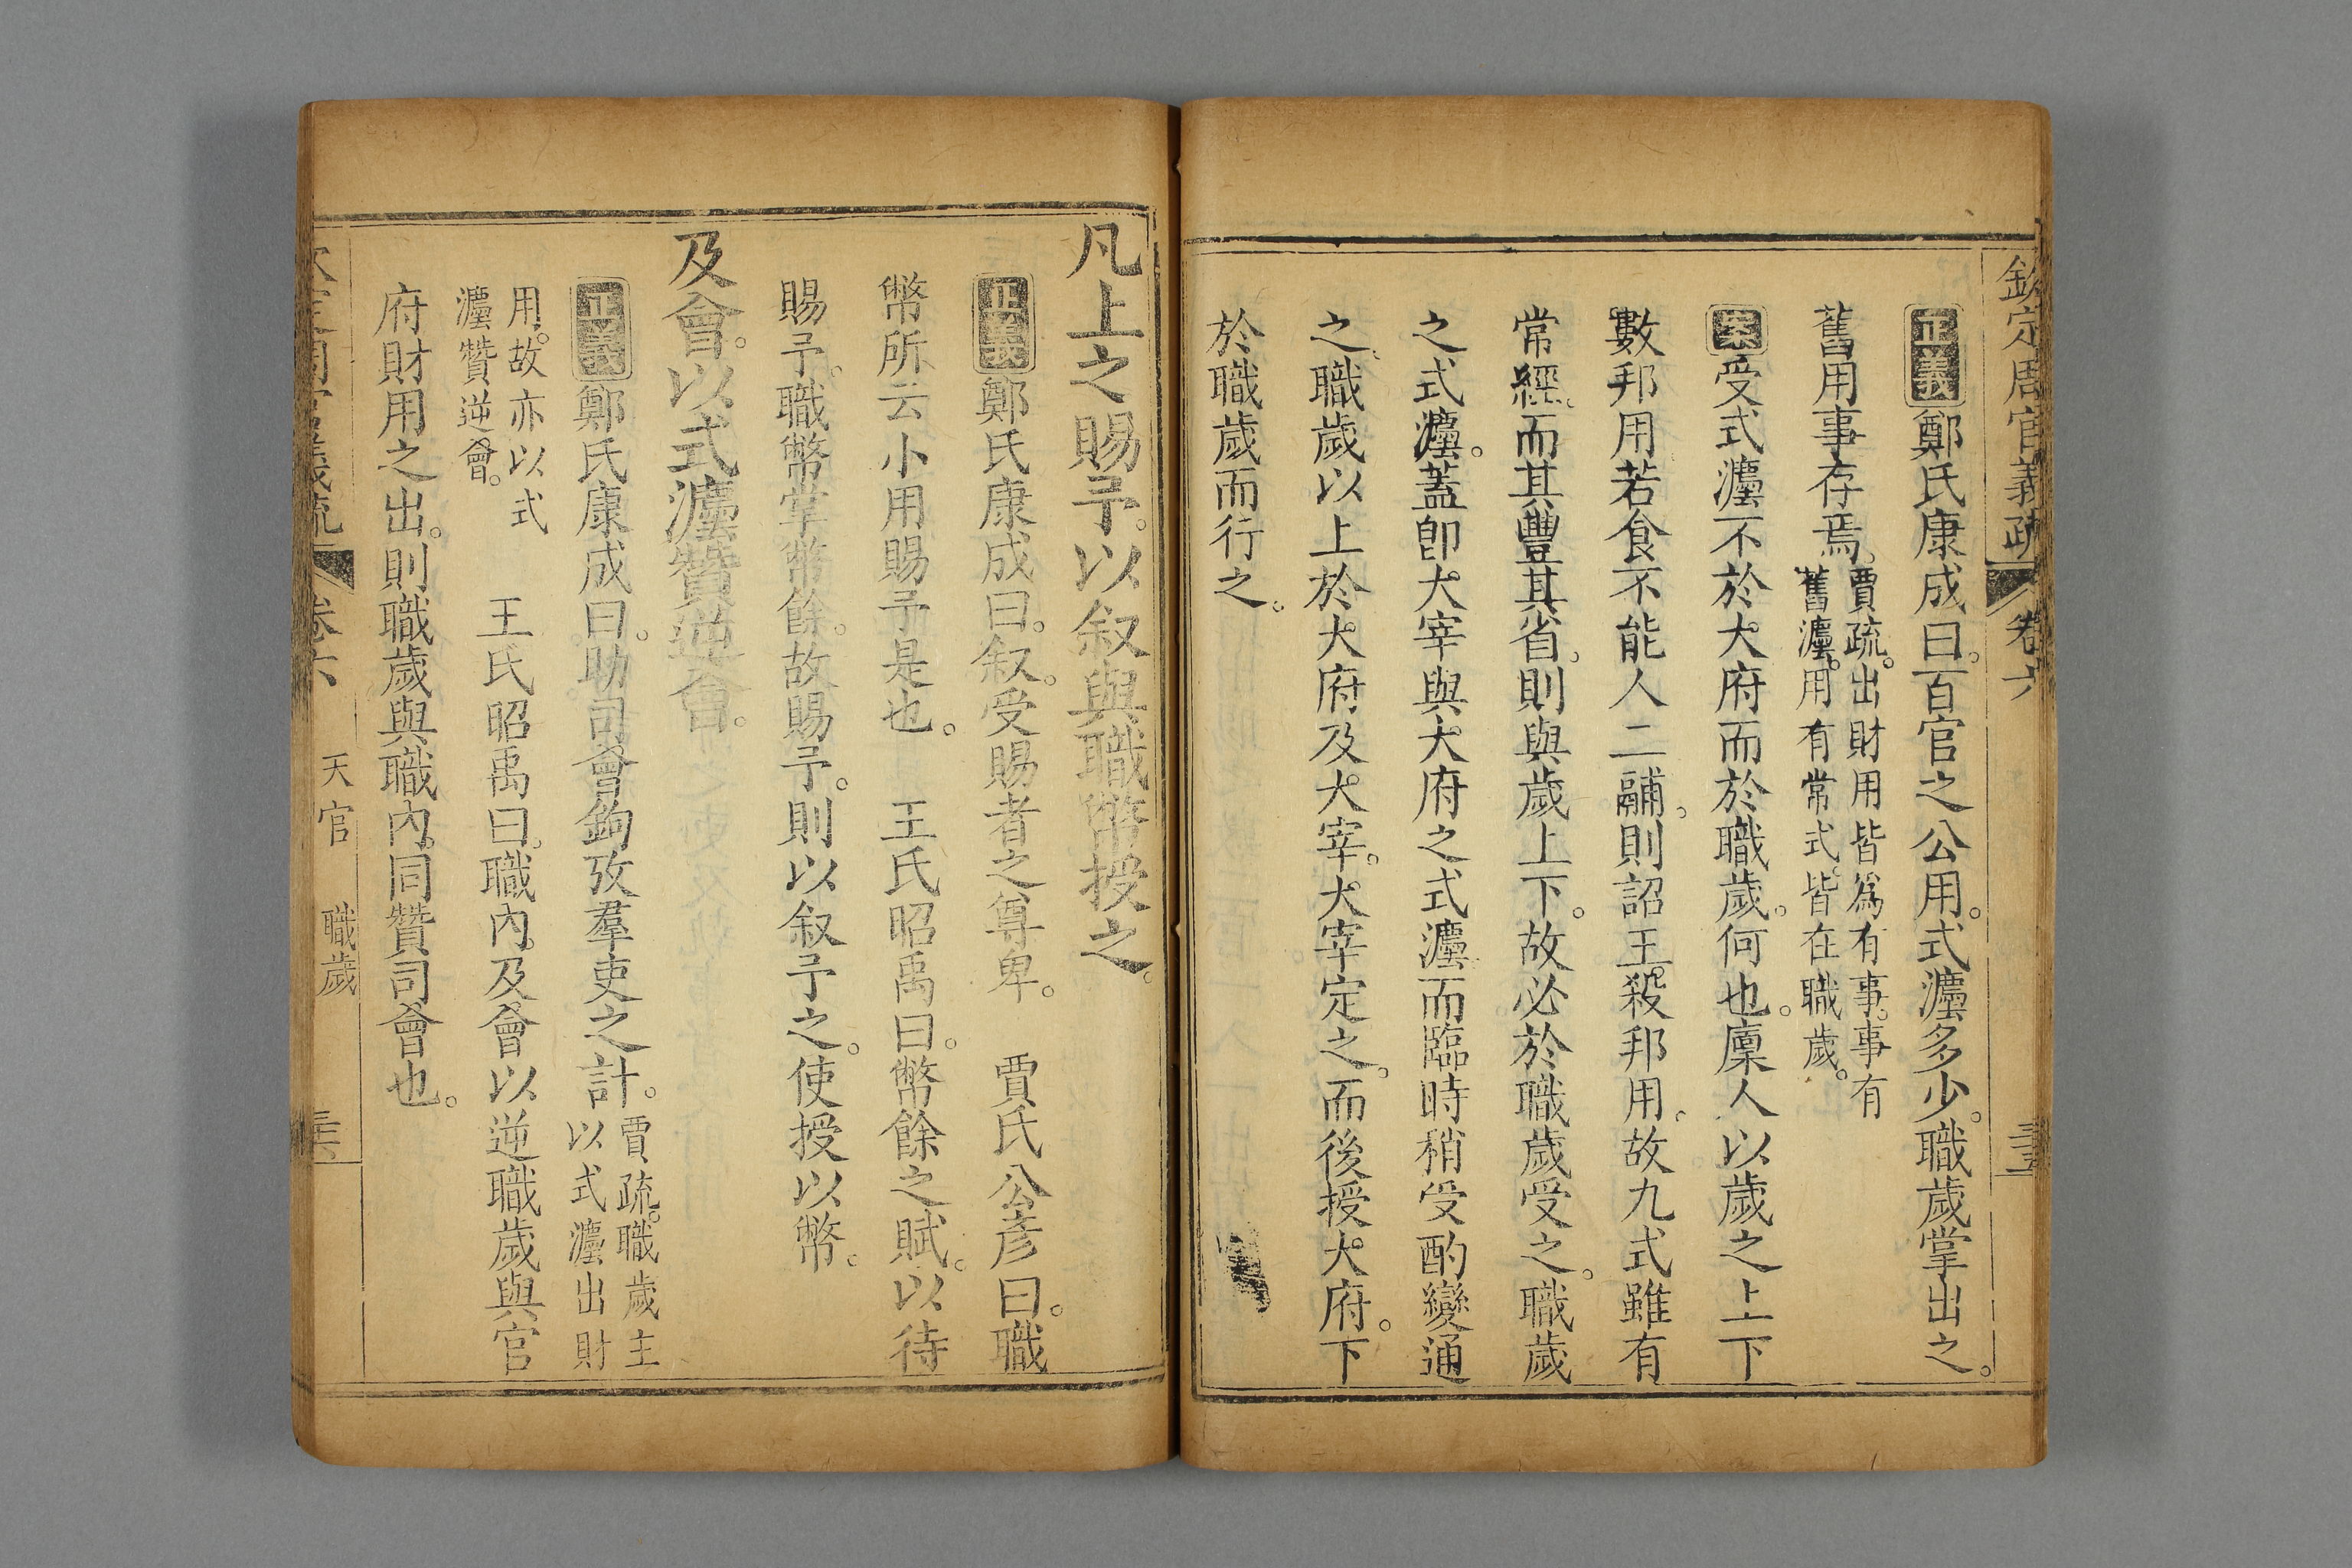 欽定周官義疏 卷六
正義鄭氏康成曰。百官之公用。式灋多少。職歲掌出之。
舊用事存焉。賈疏。出財用皆為有事。事有
舊灋。用有常式。皆在職歲。
案受式灋不於大府而於職歲。何也。廩人以歲之上下
數邦用若食不能人二鬴。則詔王殺邦用。故九式雖有
常經。而其豐其省。則與歲上下。故必於職歲受之。職歲
之式灋。蓋即大宰與大府之式灋而臨時稍受酌變通
之。職歲以上於大府及大宰。大宰定之。而後授大府。下
於職歲而行之。
凡上之賜予。以叙與職幣授之。
正義鄭氏康成曰。叙。受賜者之尊卑。 賈氏公彥曰。職
幣所云小用賜予是也。 王氏昭禹曰。幣餘之賦。以待
賜予。職幣掌幣餘。故賜予。則以叙予之。使授以幣。
及會。以式灋贊逆會。
正義鄭氏康成曰。助司會鉤攷羣吏之計。賈疏。職歲主
以式灋出財
用。故亦以式
灋贊逆會。 王氏昭禹曰。職內。及會以逆職歲與官
府財用之出。則職歲與職內。同贊司會也。
卷六 天官 職歲